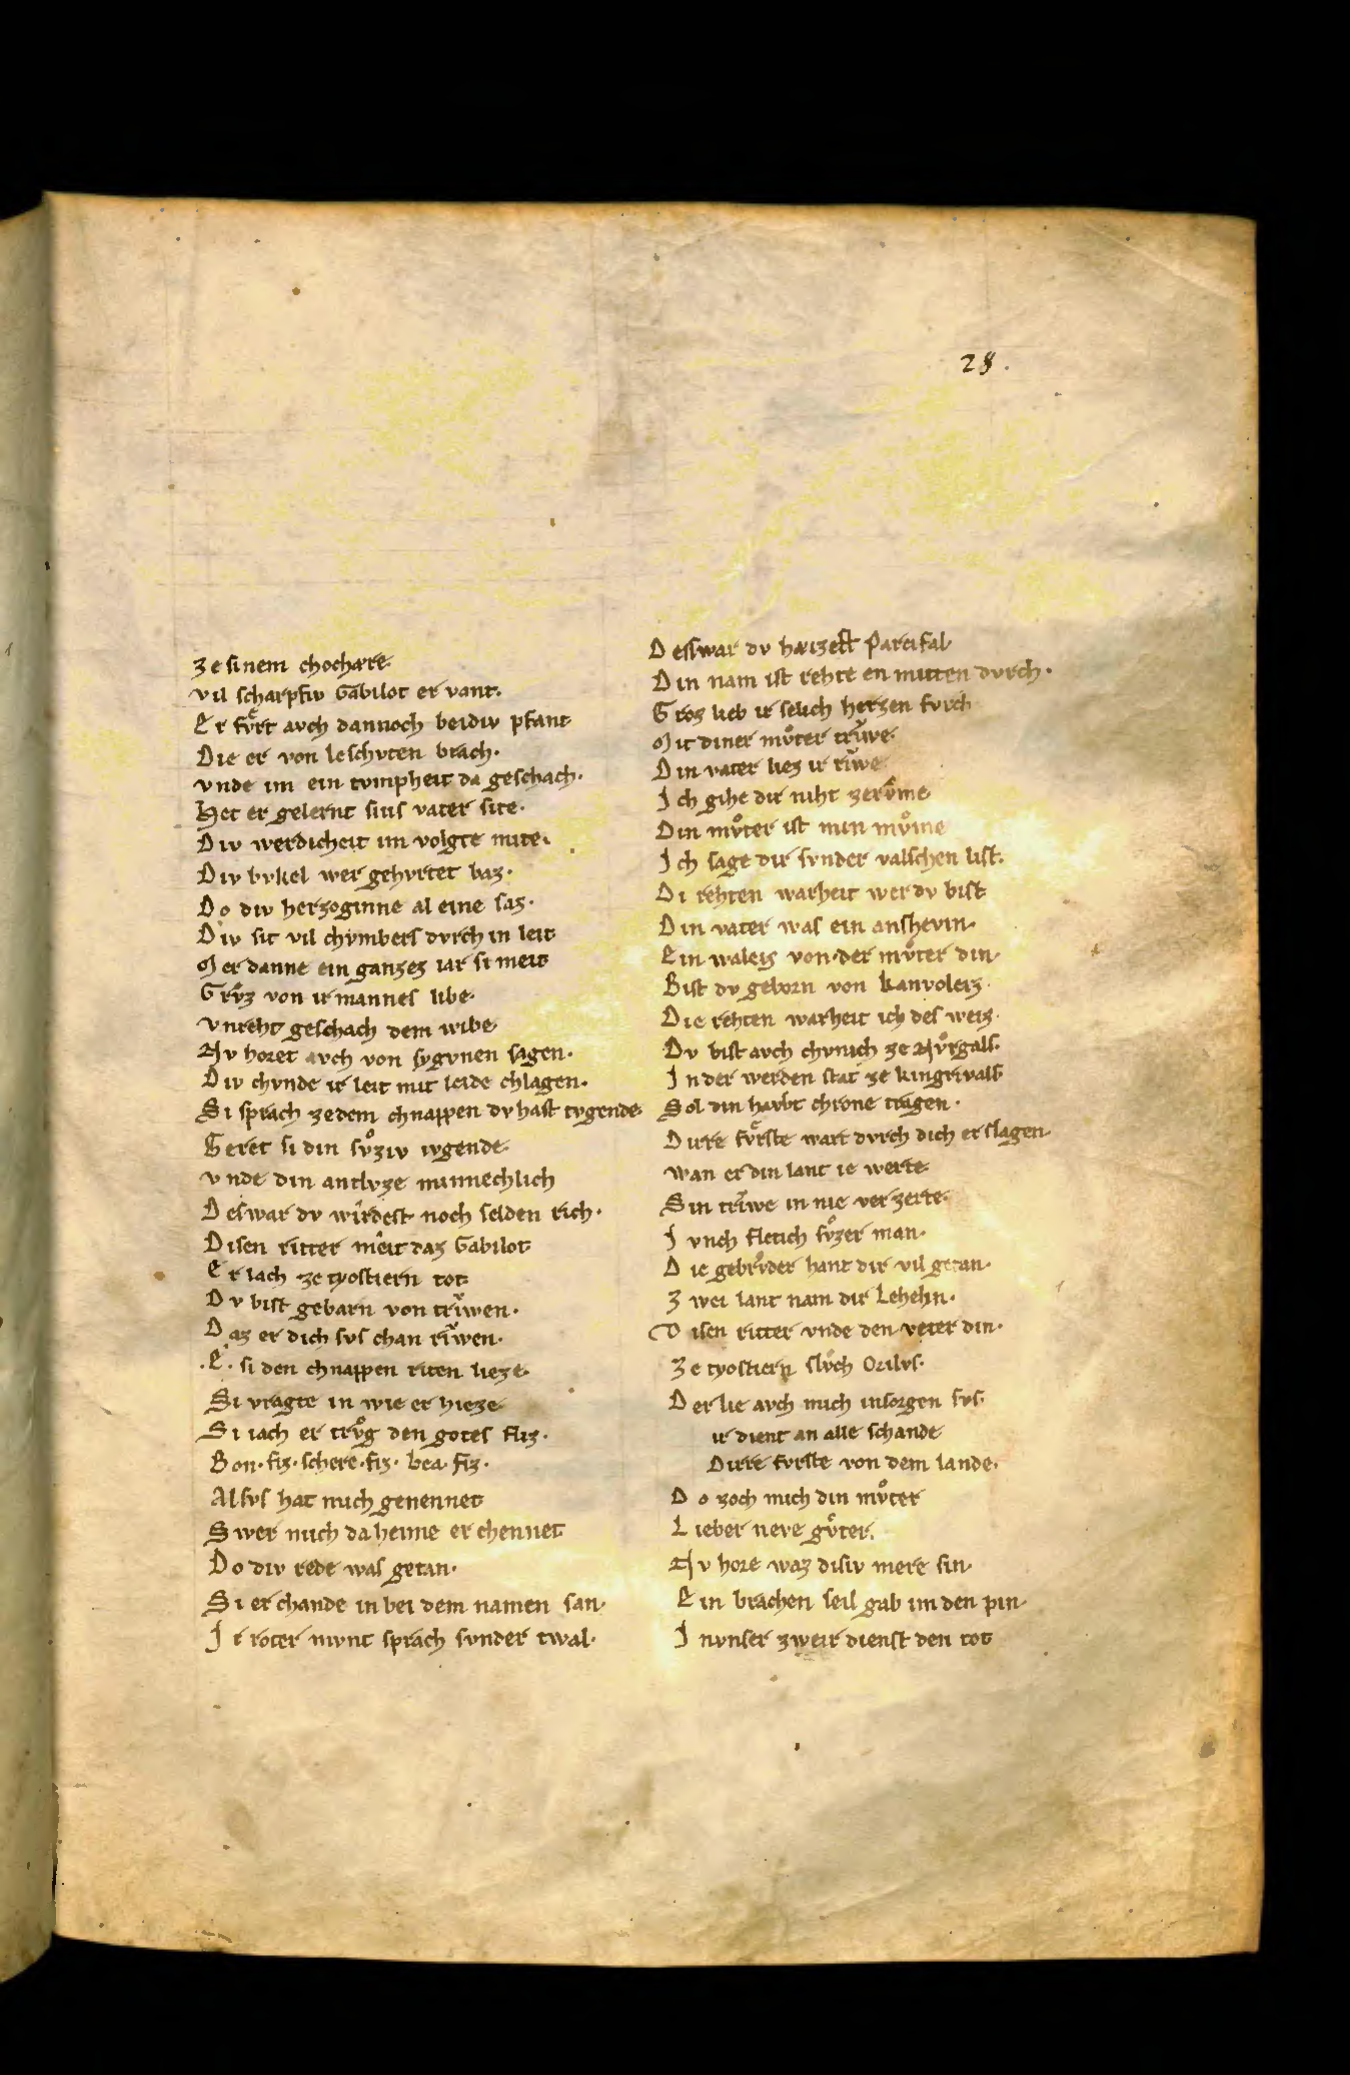 28.
ze sinem chochære.
vil scharpfiv Gabilot er vant.
Er fvͤrt avch dannoch beidiv pfant
Die er von Ieschvten brach.
vnde im ein tvmpheit da geschach.
Het er gelernt sins vater site.
Div werdicheit im volgte mite.
Div bvkel wer gehvrtet baz.
Do div herzoginne al eine saz.
Div sit vil chvmbers dvrch in leit
Mer danne ein ganzez iar si meit
Grvͦz von ir mannes libe.
vnreht geschach dem wibe
Nv horet avch von sygvnen sagen.
Div chvnde ir leit mit leide chlagen.
Si sprach ze dem chnappen dv hast tvgende
Geret si din svͦziv ivgende
vnde din antlvze minnechlich
Deswar dv wirdest noch selden rich.
Disen ritter meit daz Gabilot
Er lach ze tyostiern tot
Dv bist gebarn von triwen.
Daz er dich svs chan riwen.
.E. si den chnappen riten lieze
Si vragte in wie er hieze
Si iach er trvͦg den gotes fliz.
Bon.fiz.schere.fiz. bea.fiz.
Alsvs hat mich genennet
Swer mich da heime erchennet
Do div rede was getan.
Si erchande in bei dem namen san.
Ir roter mvnt sprach svnder twal.
Desswar dv haizest Parcifal
Din nam ist rehte en mitten dvrch.
Groz lieb ir selich herzen fvrch
Mit diner mvͦter triwe.
Din vater liez ir riwe
Ich gihe dir niht ze rvͦme
Din mvͦter ist min mvͦme
Ich sage dir svnder valschen list.
Di rehten warheit wer dv bist
Din vater was ein anshevin.
Ein waleis von der mvͦter din.
Bist dv geborn von kanvoleiz.
Die rehten warheit ich des weiz.
Dv bist avch chvnich ze Nvͦrgals.
In der werden stat ze kingrivals
Sol din havbt chrone tragen.
Dirre fvͤrste wart dvrch dich erslagen.
wan er din lant ie werte
Sin triwe in nie verzerte.
Ivnch fletich svͦzer man.
Die gebrvͦder hant dir vil getan.
Zwei lant nam dir Lehelin.
Disen ritter vnde den veter din.
Ze tyostiern slvͦch Orilvs.
Der lie avch mich in sorgen svs.
ir dient an alle schande
Dirre fvrste von dem lande.
Do zoch mich din mvͦter
Lieber neve gvͦter.
Nv hore waz disiv mere sin.
Ein brachen seil gab im den pin.
In vnser zweir dienst den tot